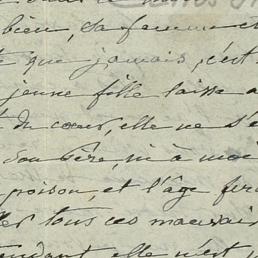 bien, sa femme et
que jamais, c'est
jeune fille laisse a
du cœur, elle ne s'e
son père, ni à moi
poison, et l'âge fera
tous ces mauvais
elle n'est